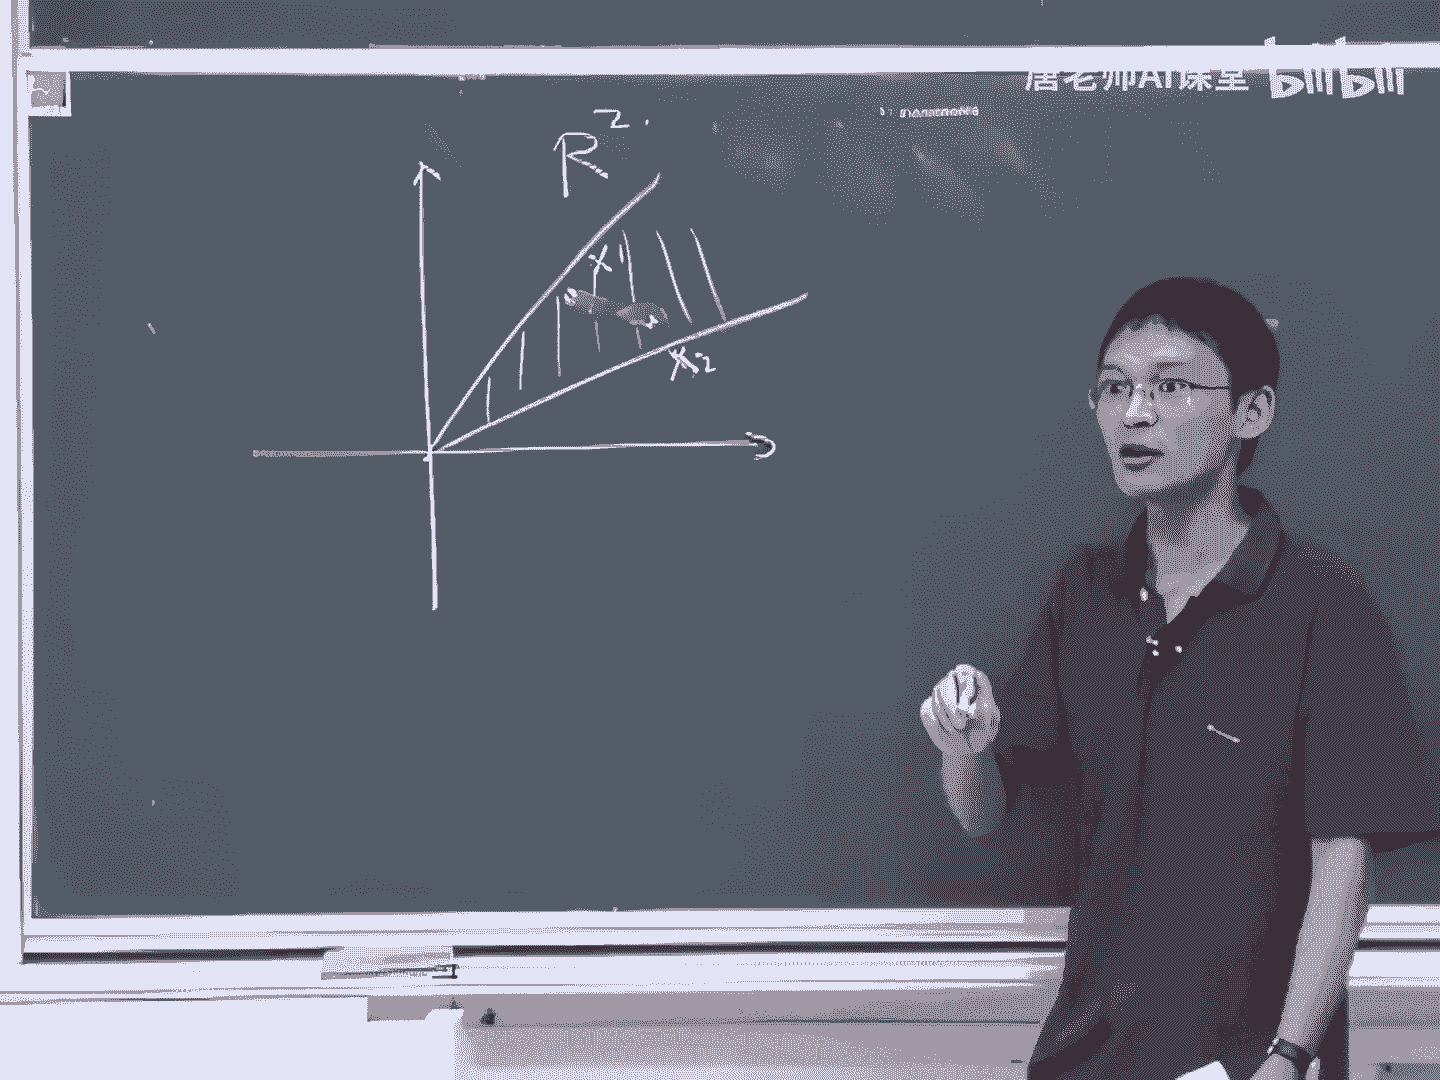 唐老师AI课堂 bilibili
R².
x₁
x₂